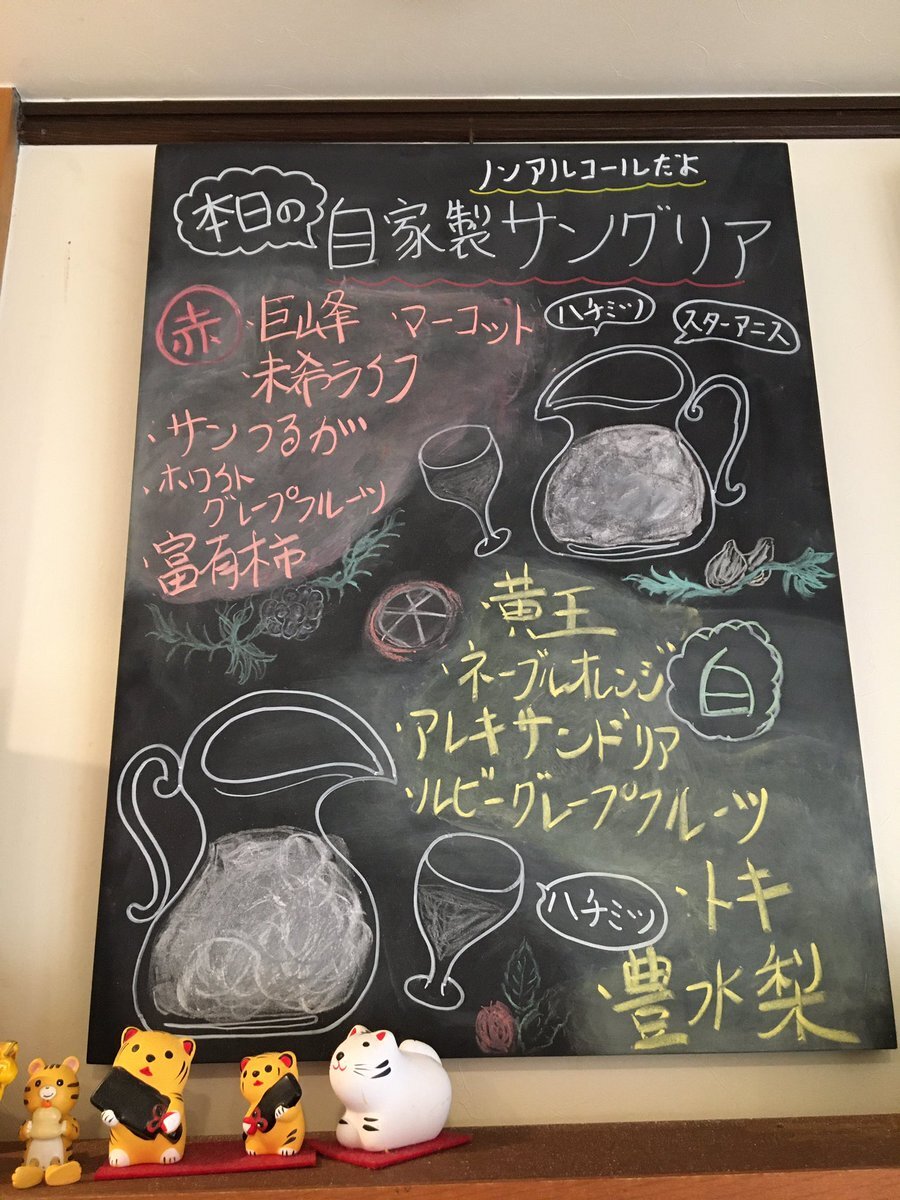 ノンアルコールだよ
本日の
自家製サングリア
赤
・巨峰 マーコット
・未希ライフ
・サンつるが
・ホワイト
グレープフルーツ
・富有柿
ハチミツ
スターアニス
白
・黄王
・ネーブルオレンジ
・アレキサンドリア
・ルビーグレープフルーツ
・トキ
・豊水梨
ハチミツ